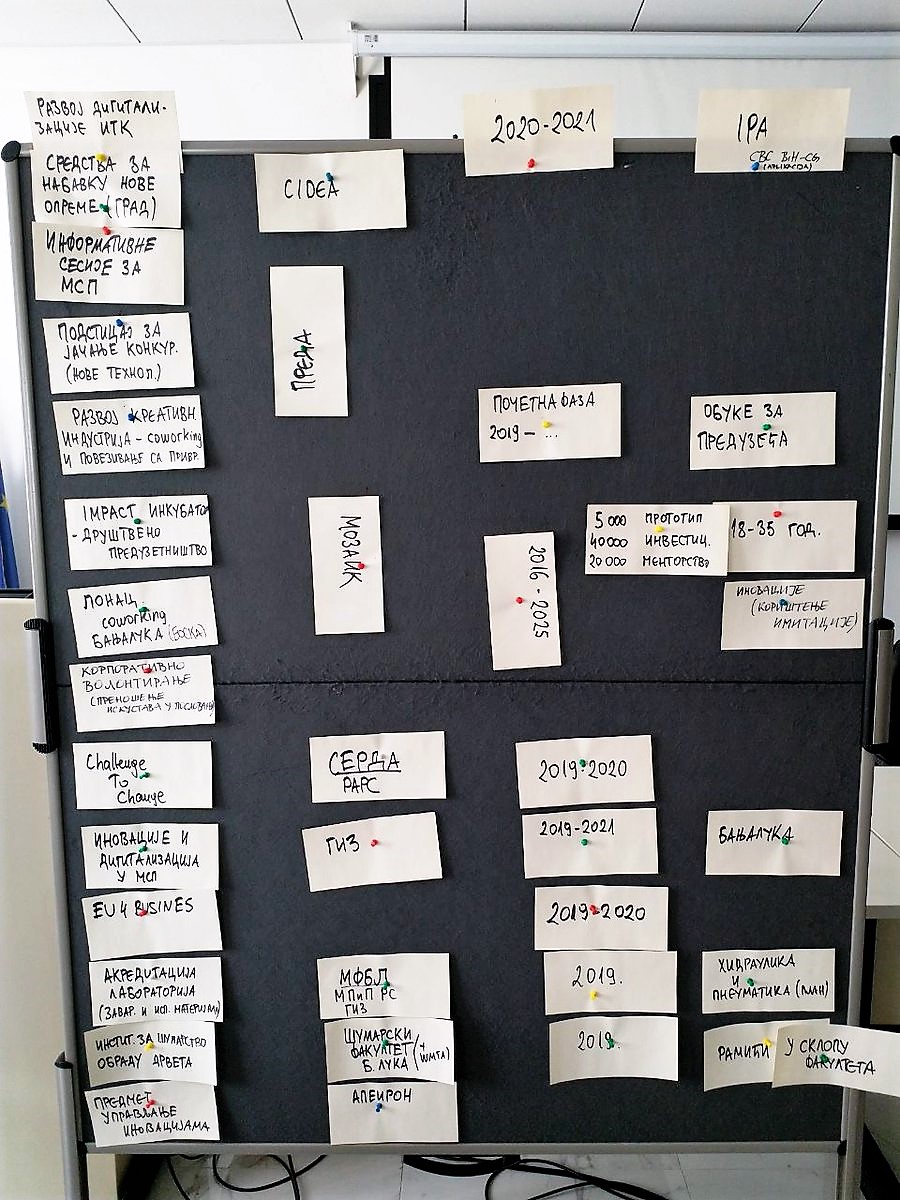 РАЗВОЈ ДИГИТАЛИ-
ЗАЦИЈЕ ИТК
СРЕДСТВА ЗА
НАБАВКУ НОВЕ
ОПРЕМЕ (ГРАД)
CIDEA
2020-2021
IPA
CBC BiH-CG
ИНФОРМАТИВНЕ
СЕСИЈЕ ЗА
МСП
ПОДСТИЦАЈ ЗА
ЈАЧАЊЕ КОНКУР.
(НОВЕ ТЕХНОЛ.)
ПРЕДА
РАЗВОЈ КРЕАТИВН.
ИНДУСТРИЈА - coworking
И ПОВЕЗИВАЊЕ СА ПРИВР.
ПОЧЕТНА ФАЗА
2019 - ...
ОБУКЕ ЗА
ПРЕДУЗЕЋА
IMPACT ИНКУБАТО
- ДРУШТВЕНО
ПРЕДУЗЕТНИШТВО
МОЗАИК
2016 - 2025
5 000 ПРОТОТИП
40 000 ИНВЕСТИЦ.
20 000 МЕНТОРСТВО
18-35 ГОД.
ИНОВАЦИЈЕ
(КОРИШТЕЊЕ
ИМИТАЦИЈЕ)
ЛОНАЦ
coworking
БАЊАЛУКА (БОСКА)
КОРПОРАТИВНО
ВОЛОНТИРАЊЕ
(ПРЕНОШЕЊЕ
ИСКУСТАВА У ПОСЛОВАЊУ
Challenge
To
Change
СЕРДА
РАРС
2019-2020
ИНОВАЦИЈЕ И
ДИГИТАЛИЗАЦИЈА
У МСП
ГИЗ
2019-2021
БАЊАЛУКА
EU 4 BUSINES
2019-2020
АКРЕДИТАЦИЈА
ЛАБОРАТОРИЈА
(ЗАВАР. И ИСП. МАТЕРИЈАЛА)
МФБЛ
МПиП РС
ГИЗ
2019.
ХИДРАУЛИКА
И
ПНЕУМАТИКА (ПЛАН)
ИНСТИТ. ЗА ШУМАРСТВО
ОБРАДУ ДРВЕТА
ШУМАРСКИ
ФАКУЛТЕТ
Б. ЛУКА
2019.
РАМИЋИ
У СКЛОПУ
ФАКУЛТЕТА
ПРЕДМЕТ
УПРАВЉАЊЕ
ИНОВАЦИЈАМА
АПЕИРОН